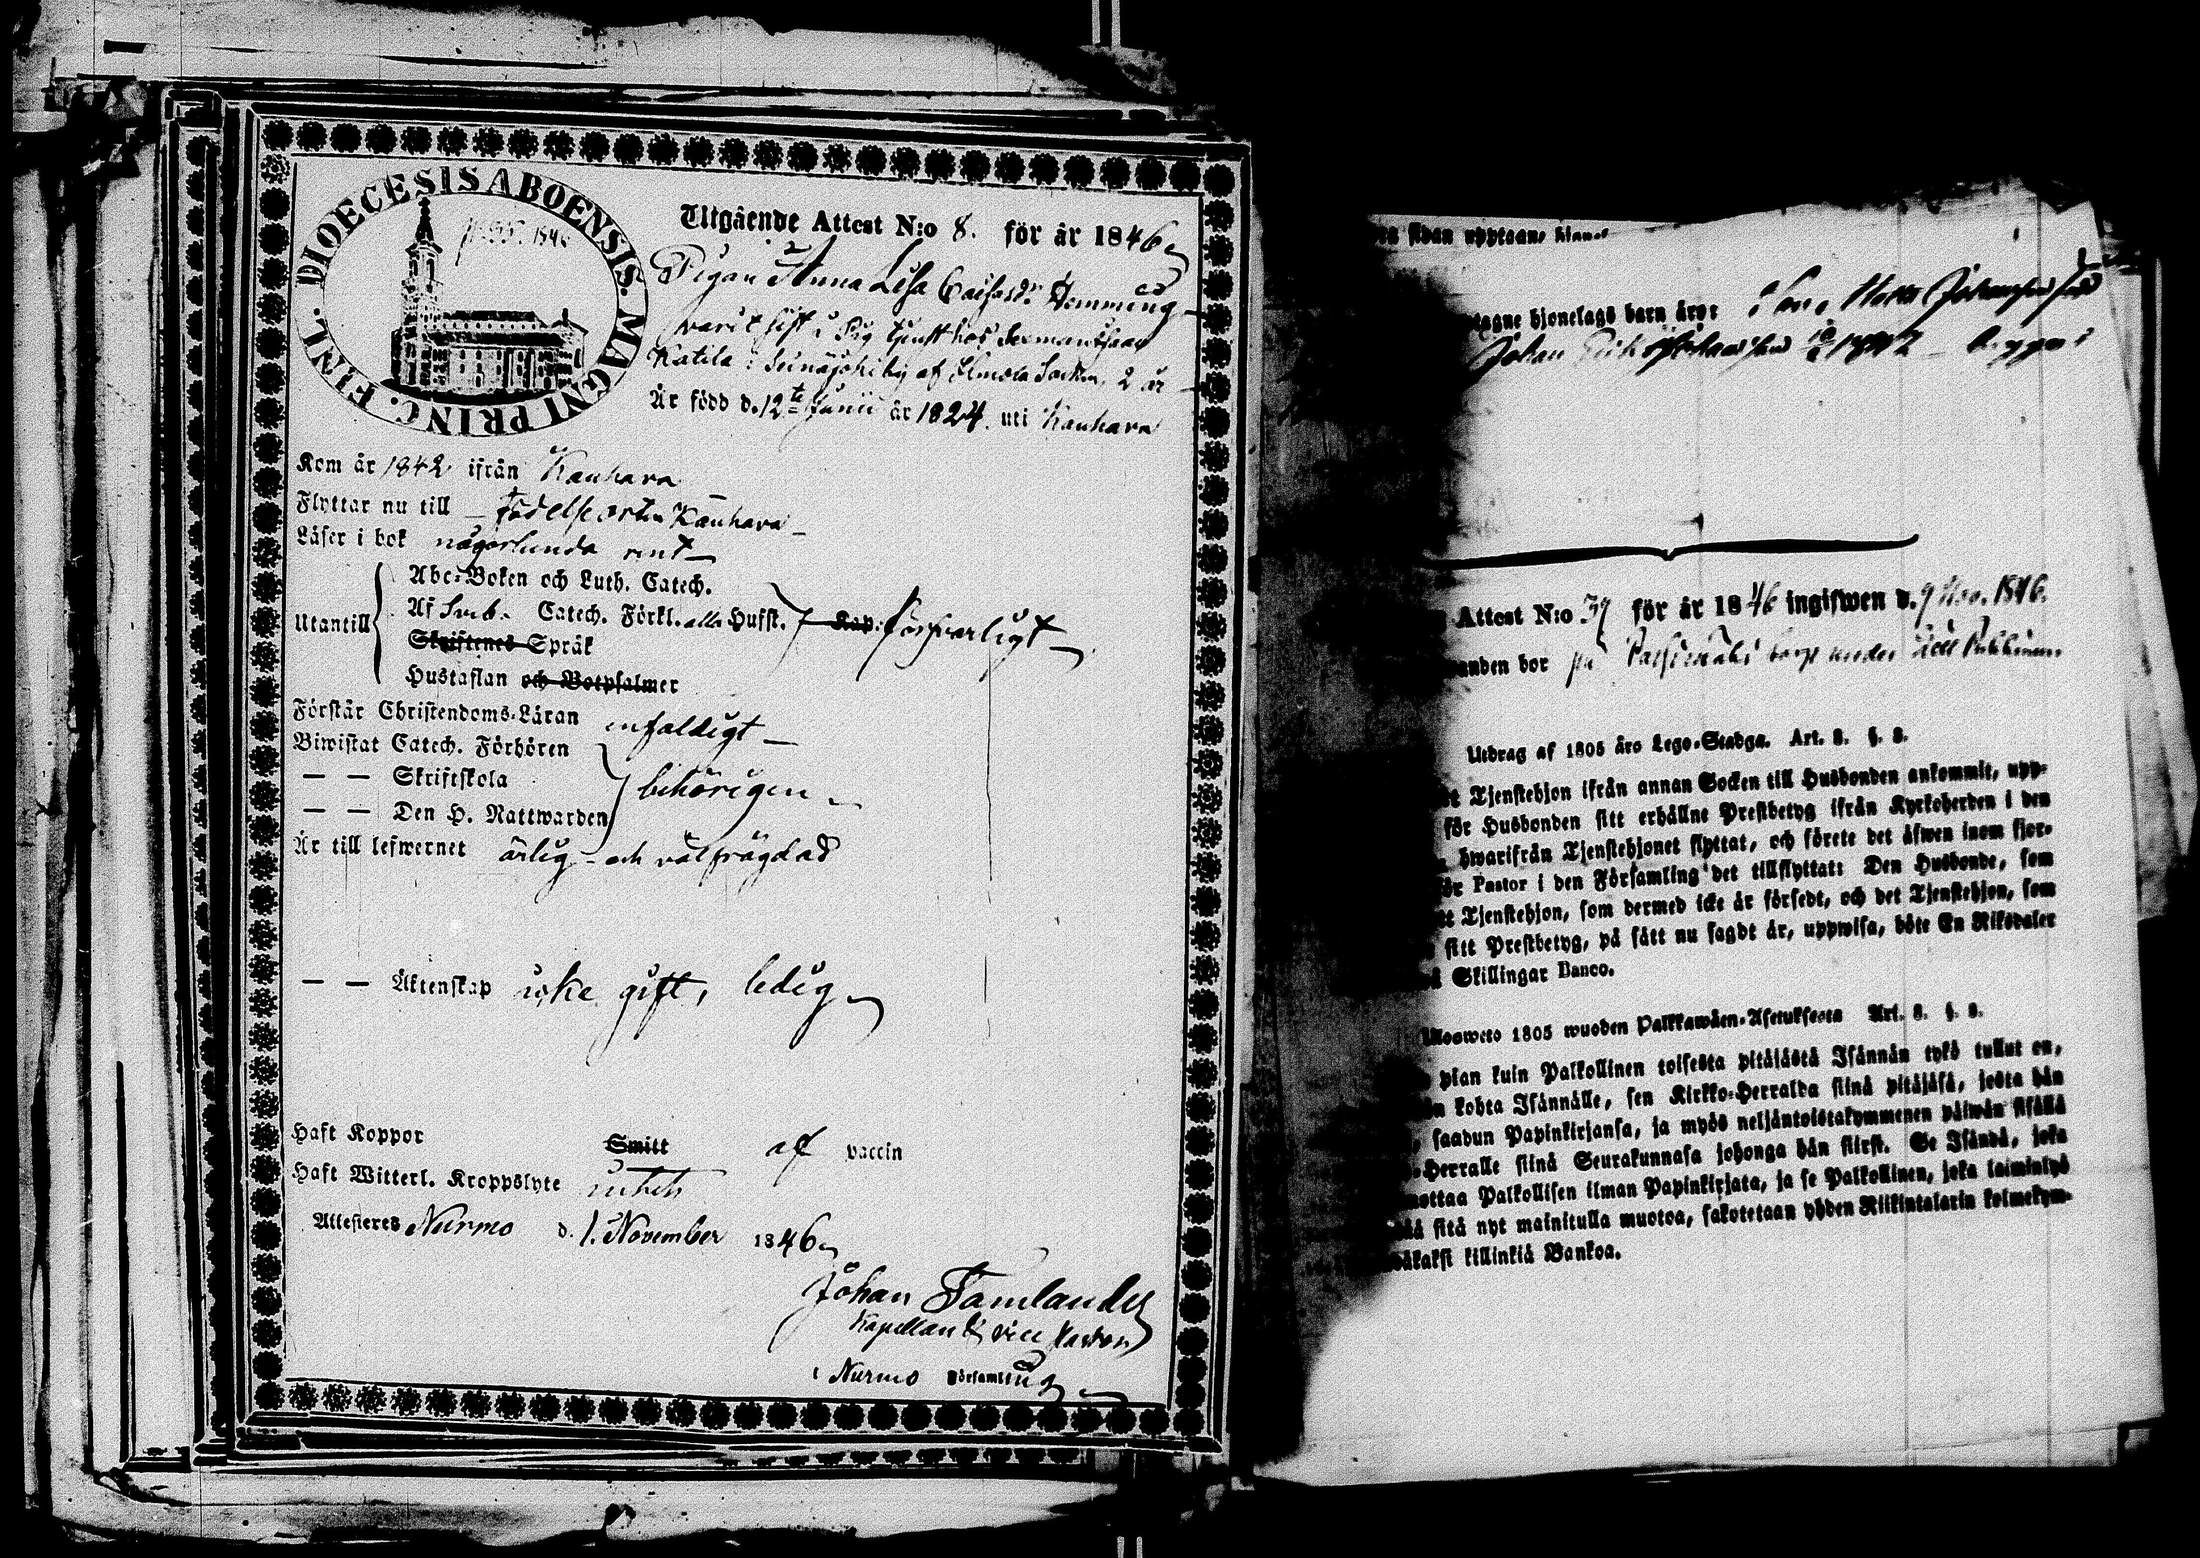 DIOECESIS ABOENSIS. MAGNI PRINC. FINL.
1846
Utgående Attest N:o 8. för år 1846
Pigan Anna Lisa Caisasdr. Hemming
varit sist i Pig tjenst hos
Katila i Seinäjoki by af Ilmola Socken, 2 år
Är född d. 12te Junii år 1824. uti Kauhava
Kom år 1842 ifrån Kauhava
Flyttar nu till födelseorten Kauhava
Läser i bok någorlunda rent
Abc-Boken och Luth. Catech.
Utantill Af Sveb. Catech. Förkl. alla Hufst. Kap. försvarligt
Skriftenes Språk
Hustaflan och Botpsalmer
Förstår Christendoms-Läran enfaldigt
Biwistat Catech. Förhören
— — Skriftskola behörigen
— — Den H. Nattwarden
Är till lefwernet ärlig och välfrägdad
— — Äktenskap icke gift, ledig
Haft Koppor Smitt af vaccin
Haft Witterl. Kroppslyte intet
Attesteres Nurmo d. 1. November 1846
Johan Tamlander
Kapellan & vice Pastor
i Nurmo Församling
sidan upptagne
tagne hjonelags barn äro: Johansson
Johan 1842
Attest N:o 39 för år 1846 ingifwen d. 9 Nov. 1846.
bor på under
Utdrag af 1805 års Lego-Stadga. Art. 8. §. 8.
Tjenstehjon ifrån annan Socken till Husbonden ankommit, upp-
för Husbonden sitt erhållne Prestbetyg ifrån Kyrkoherden i den
hwarifrån Tjenstehjonet flyttat, och förete det äfwen inom fjor-
för Pastor i den Församling det tillflyttat: Den Husbonde, som
Tjenstehjon, som dermed icke är försedt, och det Tjenstehjon, som
sitt Prestbetyg, på sätt nu sagdt är, uppwisa, böte En Riksdaler
Skillingar Banco.
Ulosweto 1805 wuoden Palkkawäen-Asetuksesta Art. 8. §. 8.
pian kuin Palkollinen toisesta pitäjästä Isännän tykö tullut on,
kohta Isännälle, sen Kirkko-Herralda siinä pitäjäsä, josta hän
saadun Papinkirjansa, ja myös neljäntoistakymmenen päiwän sisällä
Herralle siinä Seurakunnasa johonga hän siirst. Se Isändä, joka
ottaa Palkollisen ilman Papinkirjata, ja se Palkollinen, joka laiminlyö
sitä nyt mainitulla muotoa, sakotetaan yhden Riikintalarin kolmekym-
kaksi killinkiä Bankoa.